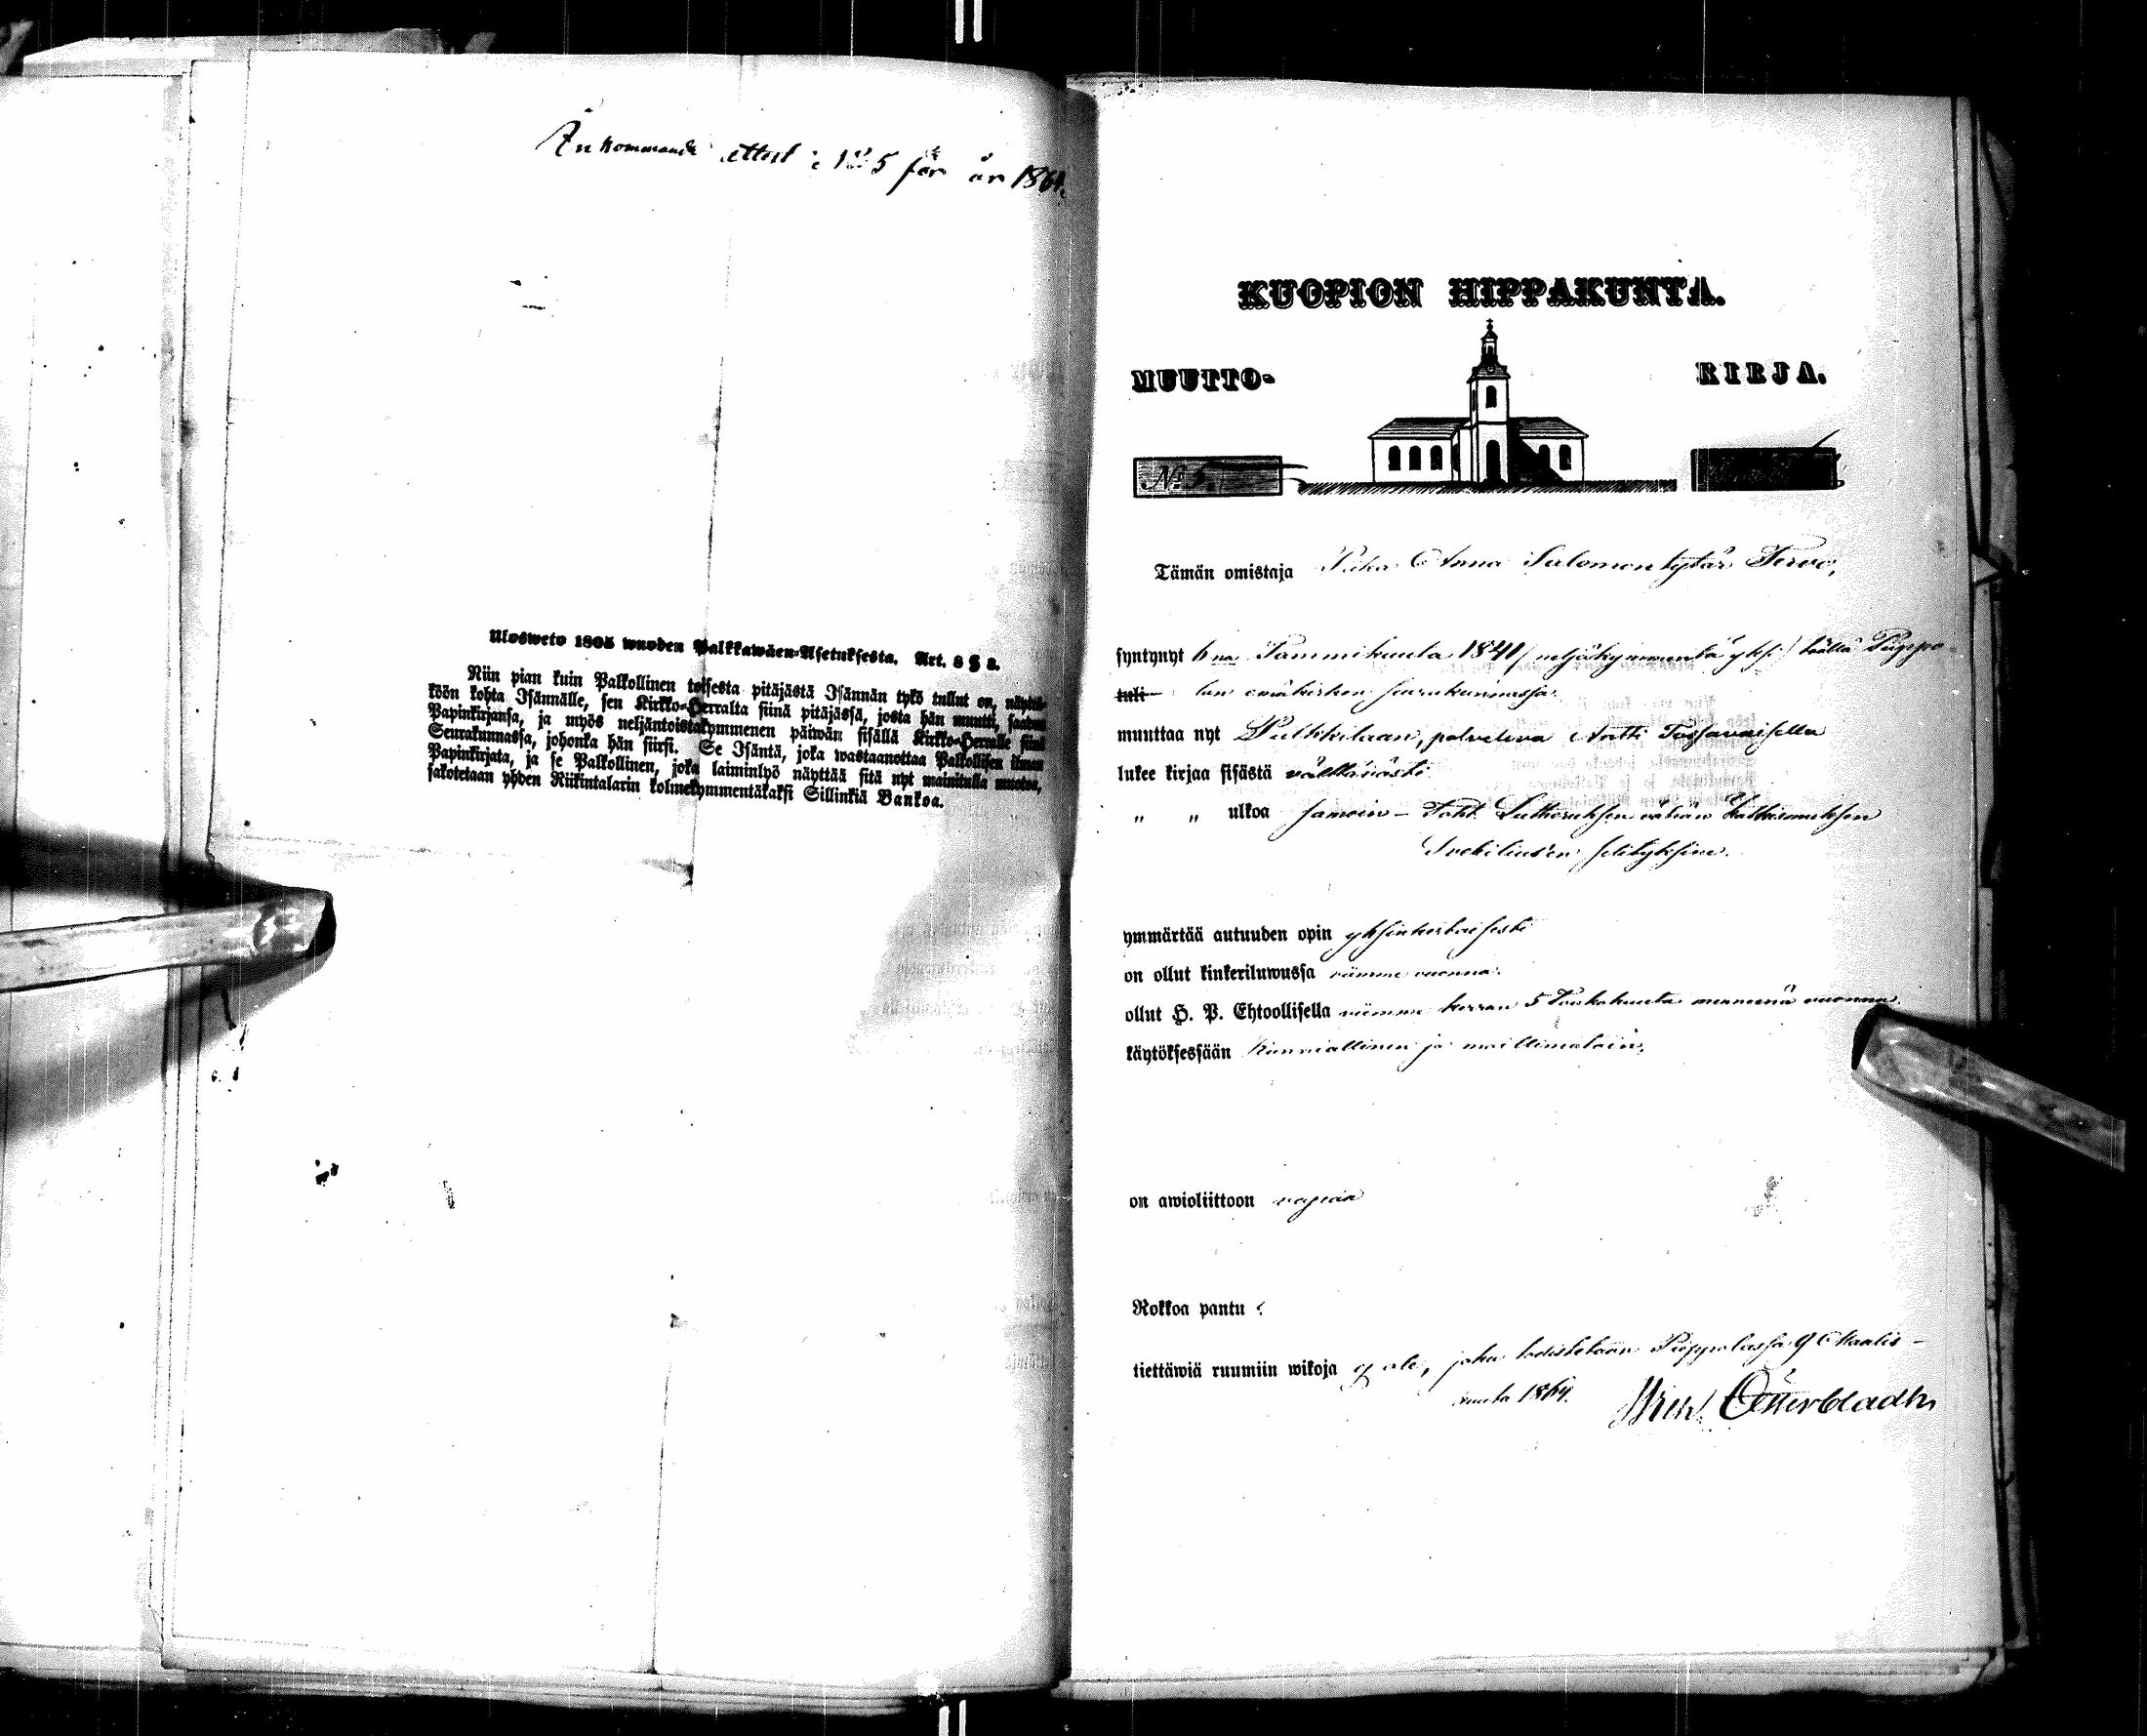 Ankommande attest: No 5 för år 1864.
Ulosweto 1805 wuoden Palkkawäen-Asetuksesta. Art. 8 § 8.
Niin pian kuin Palkollinen toisesta pitäjästä Isännän tykö tullut on, näyttä-
köön kohta Isännälle, sen Kirkko-Herralta siinä pitäjässä, josta hän muutti, saatua
Papinkirjansa, ja myös neljäntoistakymmenen päiwän sisällä Kirkko-Herralle siinä
Seurakunnassa, johonka hän siirsi. Se Isäntä, joka wastaanottaa Palkollisen ilman
Papinkirjata, ja se Palkollinen, joka laiminlyö näyttää sitä nyt mainitulla muotoa,
sakotetaan yhden Riikintalarin kolmekymmentäkaksi Sillinkiä Bankoa.
KUOPION HIPPAKUNTA.
MUUTTO- KIRJA.
No 5.
Tämän omistaja Piika Anna Salomontytär Tervo,
syntynyt 6na Tammikuuta 1841 (neljäkymmentä yksi) täällä Piippo-
tuli lan emäkirkon seurakunnassa
muuttaa nyt Pulkkilaan, palveleva Antti Tossavaisella
lukee kirjaa sisästä välttävästi
" " ulkoa samoin – Toht. Lutheruksen vähän Katkismuksen
Svebiliusen selityksine.
ymmärtää autuuden opin yksinkertaisesti
on ollut kinkeriluwussa viimme vuonna.
ollut H. P. Ehtoollisella viimme kerran 5 Toukokuuta menneenä vuonna.
käytöksessään kunniallinen ja moittimatoin,
on awioliittoon vapaa
Rokkoa pantu ?
tiettäwiä ruumiin wikoja ej ole, joka todistetaan Piippolassa 9 Maalis-
kuuta 1864. Österbladh